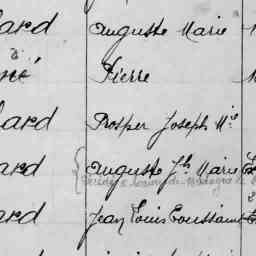 ard Auguste Marie
Pierre
ard Prosper Joseph Mie
ard Auguste Jh Marie
ard Jean Louis Toussaint